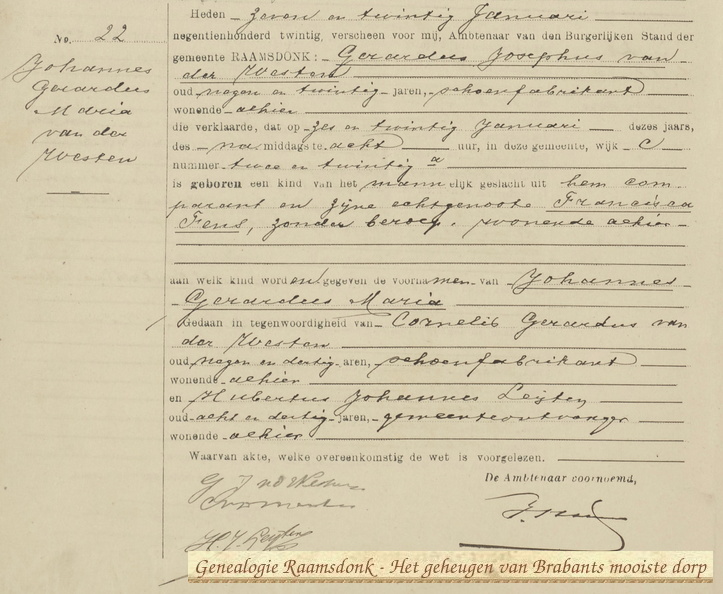 No. 22
Johannes
Gerardus
Maria
van der
Westen
Heden zeven en twintig Januari
negentienhonderd twintig, verscheen voor mij, Ambtenaar van den Burgerlijken Stand der
gemeente RAAMSDONK: Gerardus Josephus van
der Westen
oud negen en twintig jaren, schoenfabrikant
wonende alhier
die verklaarde, dat op zes en twintig Januari dezes jaars,
des na middags te acht uur, in deze gemeente, wijk C
nummer twee en twintig a
is geboren een kind van het mannelijk geslacht uit hem com-
parant en zijne echtgenoote Francisca
Fens, zonder beroep, wonende alhier
aan welk kind worden gegeven de voornamen van Johannes
Gerardus Maria
Gedaan in tegenwoordigheid van Cornelis Gerardus van
der Westen
oud negen en dertig jaren, schoenfabrikant
wonende alhier
en Hubertus Johannes Leijten
oud acht en dertig jaren, gemeenteontvanger
wonende alhier
Waarvan akte, welke overeenkomstig de wet is voorgelezen.
De Ambtenaar voornoemd,
G J v d Westen
H. J. Leijten
Genealogie Raamsdonk - Het geheugen van Brabants mooiste dorp